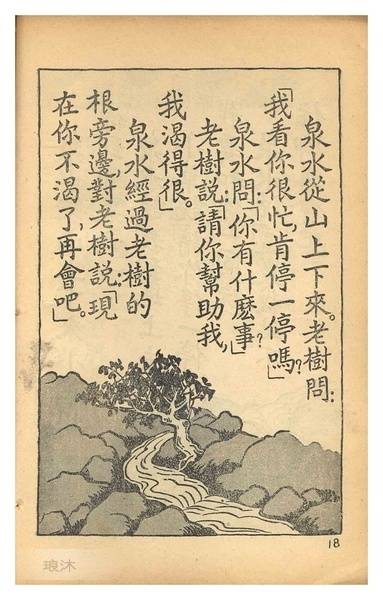 泉水從山上下來。老樹問：
「我看你很忙，肯停一停嗎？」
泉水問：「你有什麼事？」
老樹說：「請你幫助我，
我渴得很。」
泉水經過老樹的
根旁邊，對老樹說：「現
在你不渴了，再會吧。」
18
琅沐